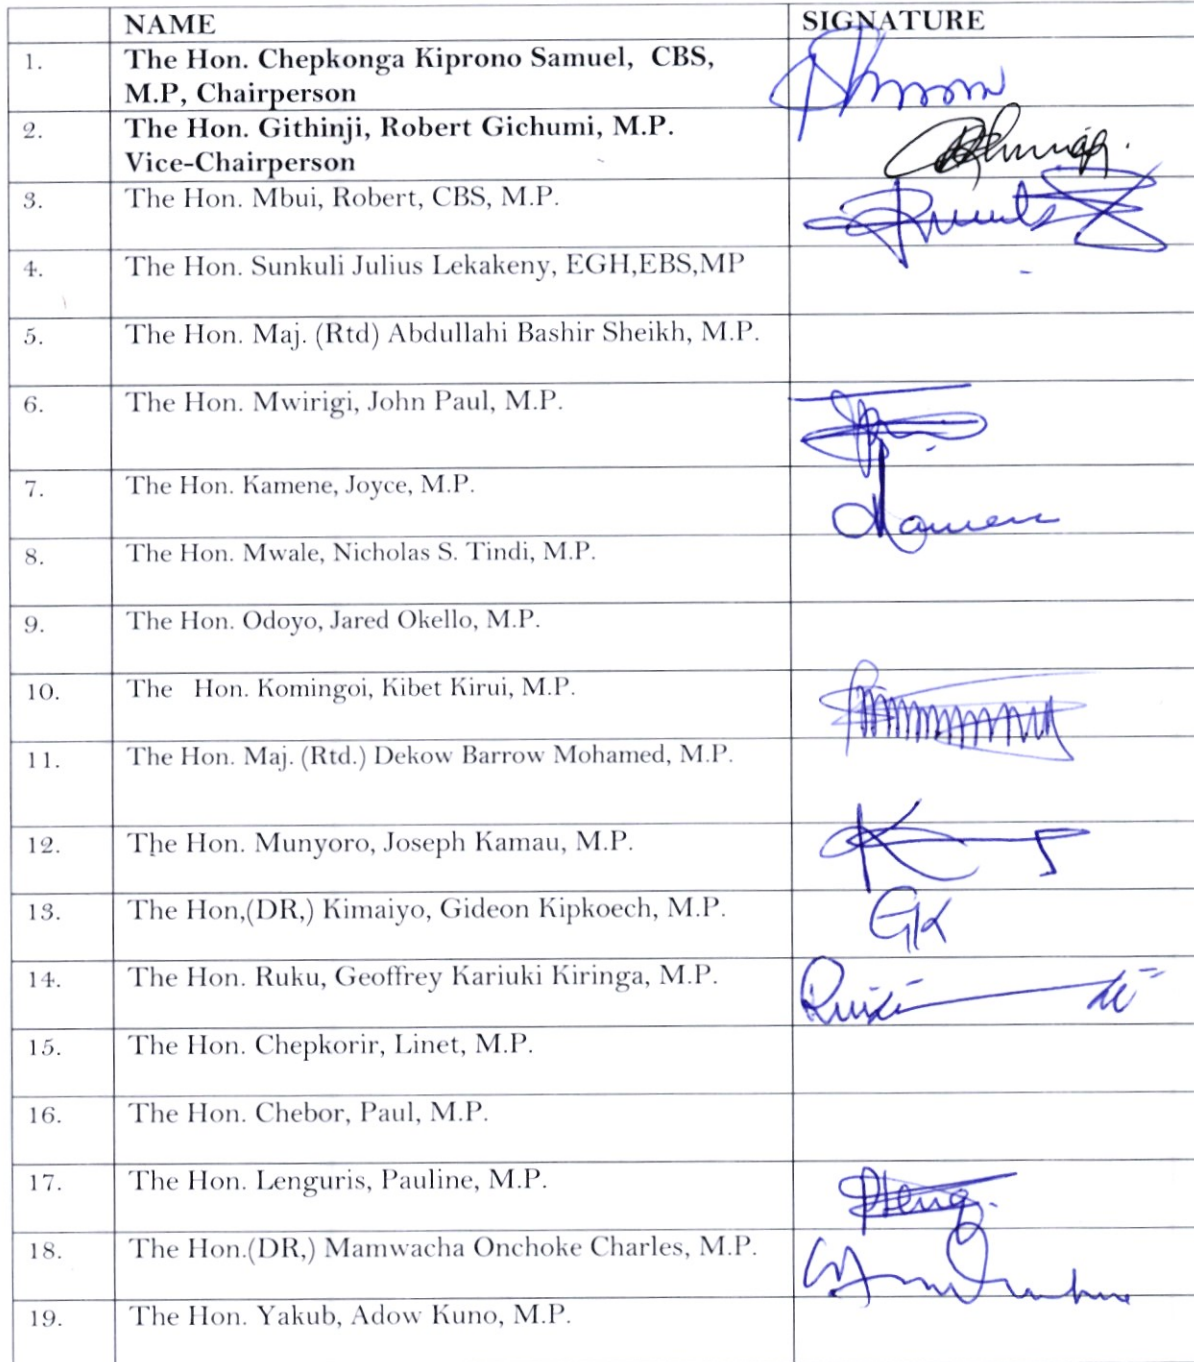 NAME SIGNATURE
1. The Hon. Chepkonga Kiprono Samuel, CBS,
M.P, Chairperson
2. The Hon. Githinji, Robert Gichumi, M.P.
Vice-Chairperson
3. The Hon. Mbui, Robert, CBS, M.P.
4. The Hon. Sunkuli Julius Lekakeny, EGH,EBS,MP
5. The Hon. Maj. (Rtd) Abdullahi Bashir Sheikh, M.P.
6. The Hon. Mwirigi, John Paul, M.P.
7. The Hon. Kamene, Joyce, M.P.
8. The Hon. Mwale, Nicholas S. Tindi, M.P.
9. The Hon. Odoyo, Jared Okello, M.P.
10. The Hon. Komingoi, Kibet Kirui, M.P.
11. The Hon. Maj. (Rtd.) Dekow Barrow Mohamed, M.P.
12. The Hon. Munyoro, Joseph Kamau, M.P.
13. The Hon,(DR,) Kimaiyo, Gideon Kipkoech, M.P. GK
14. The Hon. Ruku, Geoffrey Kariuki Kiringa, M.P.
15. The Hon. Chepkorir, Linet, M.P.
16. The Hon. Chebor, Paul, M.P.
17. The Hon. Lenguris, Pauline, M.P.
18. The Hon.(DR,) Mamwacha Onchoke Charles, M.P.
19. The Hon. Yakub, Adow Kuno, M.P.